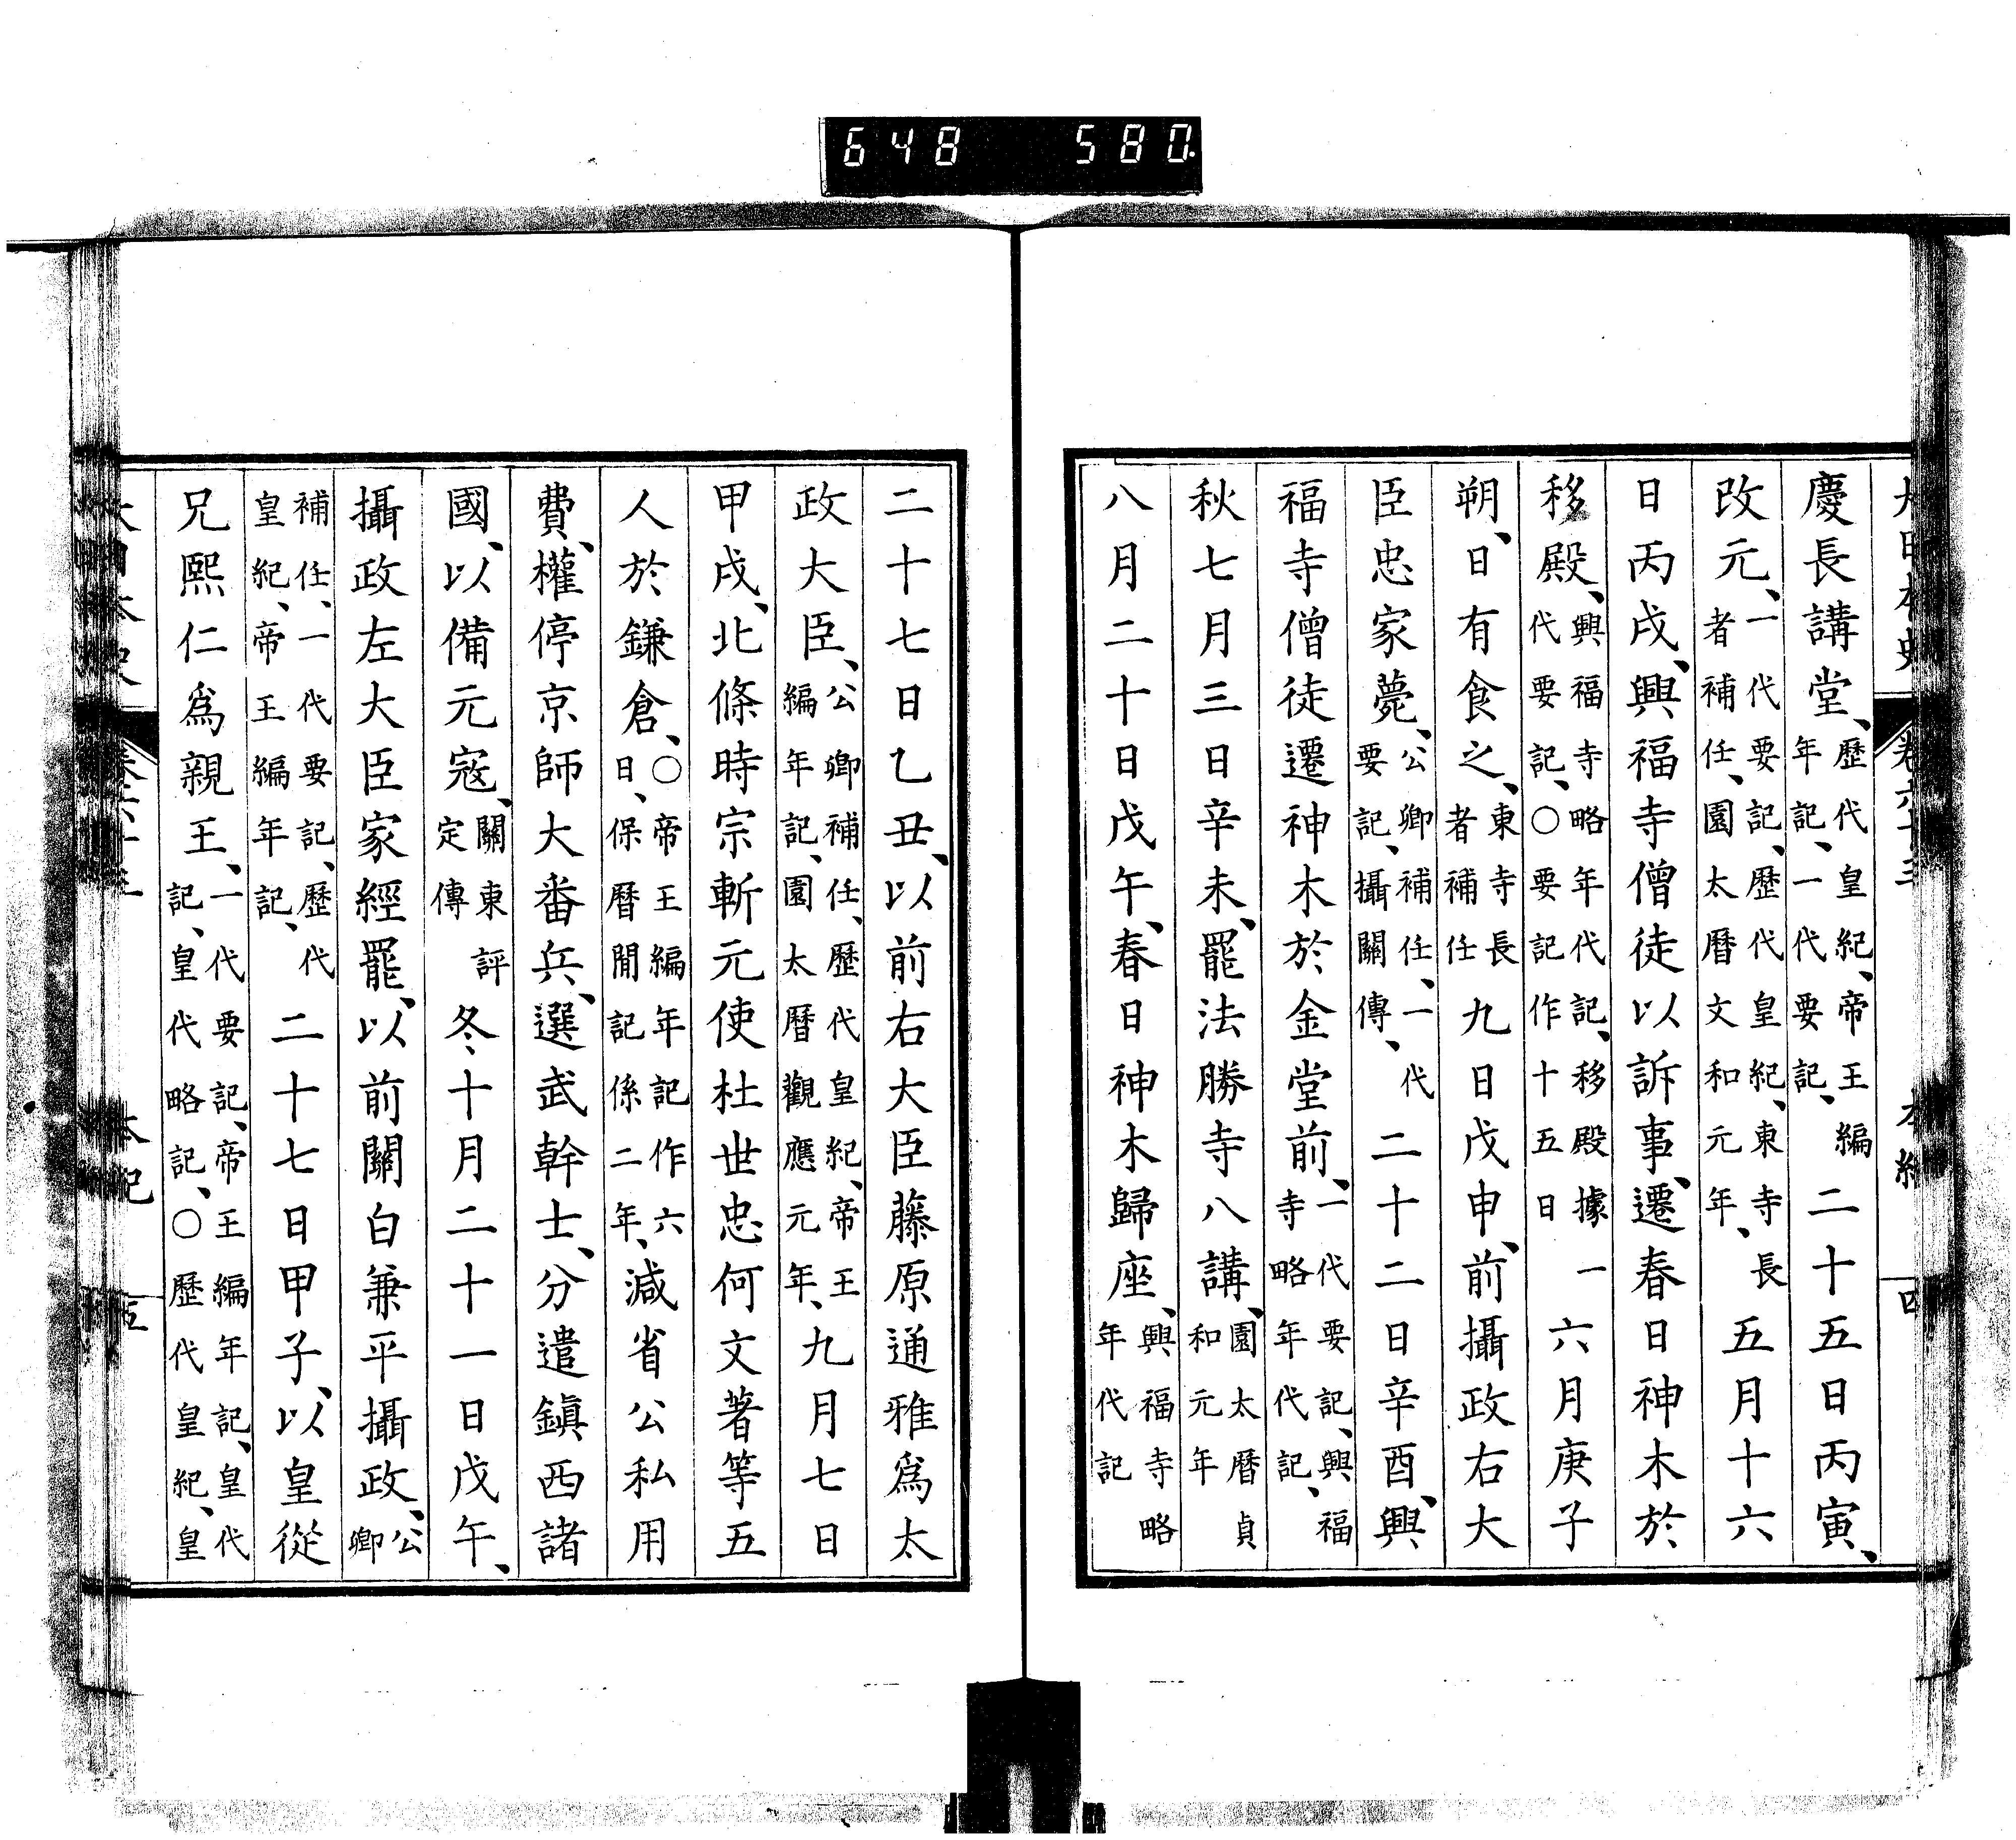 648 580.
大日本史 卷六十三 本紀 四
慶長講堂、歷代皇紀、帝王編年記、一代要記、二十五日丙寅、
改元、一代要記、歷代皇紀、東寺長者補任、園太曆文和元年、五月十六
日丙戌、興福寺僧徒以訴事、遷春日神木於
移殿、興福寺略年代記、移殿據一代要記、○要記作十五日六月庚子
朔、日有食之、東寺長者補任九日戊申、前攝政右大
臣忠家薨、公卿補任、一代要記、攝關傳、二十二日辛酉、興
福寺僧徒遷神木於金堂前、一代要記、興福寺略年代記、
秋七月三日辛未、罷法勝寺八講、園太曆貞和元年
八月二十日戊午、春日神木歸座、興福寺略年代記
二十七日乙丑、以前右大臣藤原通雅爲太
政大臣、公卿補任、歷代皇紀、帝王編年記、園太曆觀應元年、九月七日
甲戌、北條時宗斬元使杜世忠何文著等五
人於鎌倉、○帝王編年記作六日、保曆閒記係二年、減省公私用
費、權停京師大番兵、選武幹士、分遣鎮西諸
國、以備元寇、關東評定傳冬十月二十一日戊午、
攝政左大臣家經罷、以前關白兼平攝政、公卿
補任、一代要記、歷代皇紀、帝王編年記、二十七日甲子、以皇從
兄熙仁爲親王、一代要記、帝王編年記、皇代記、皇代略記、○歷代皇紀、皇
大日本史 卷六十三 本紀 五